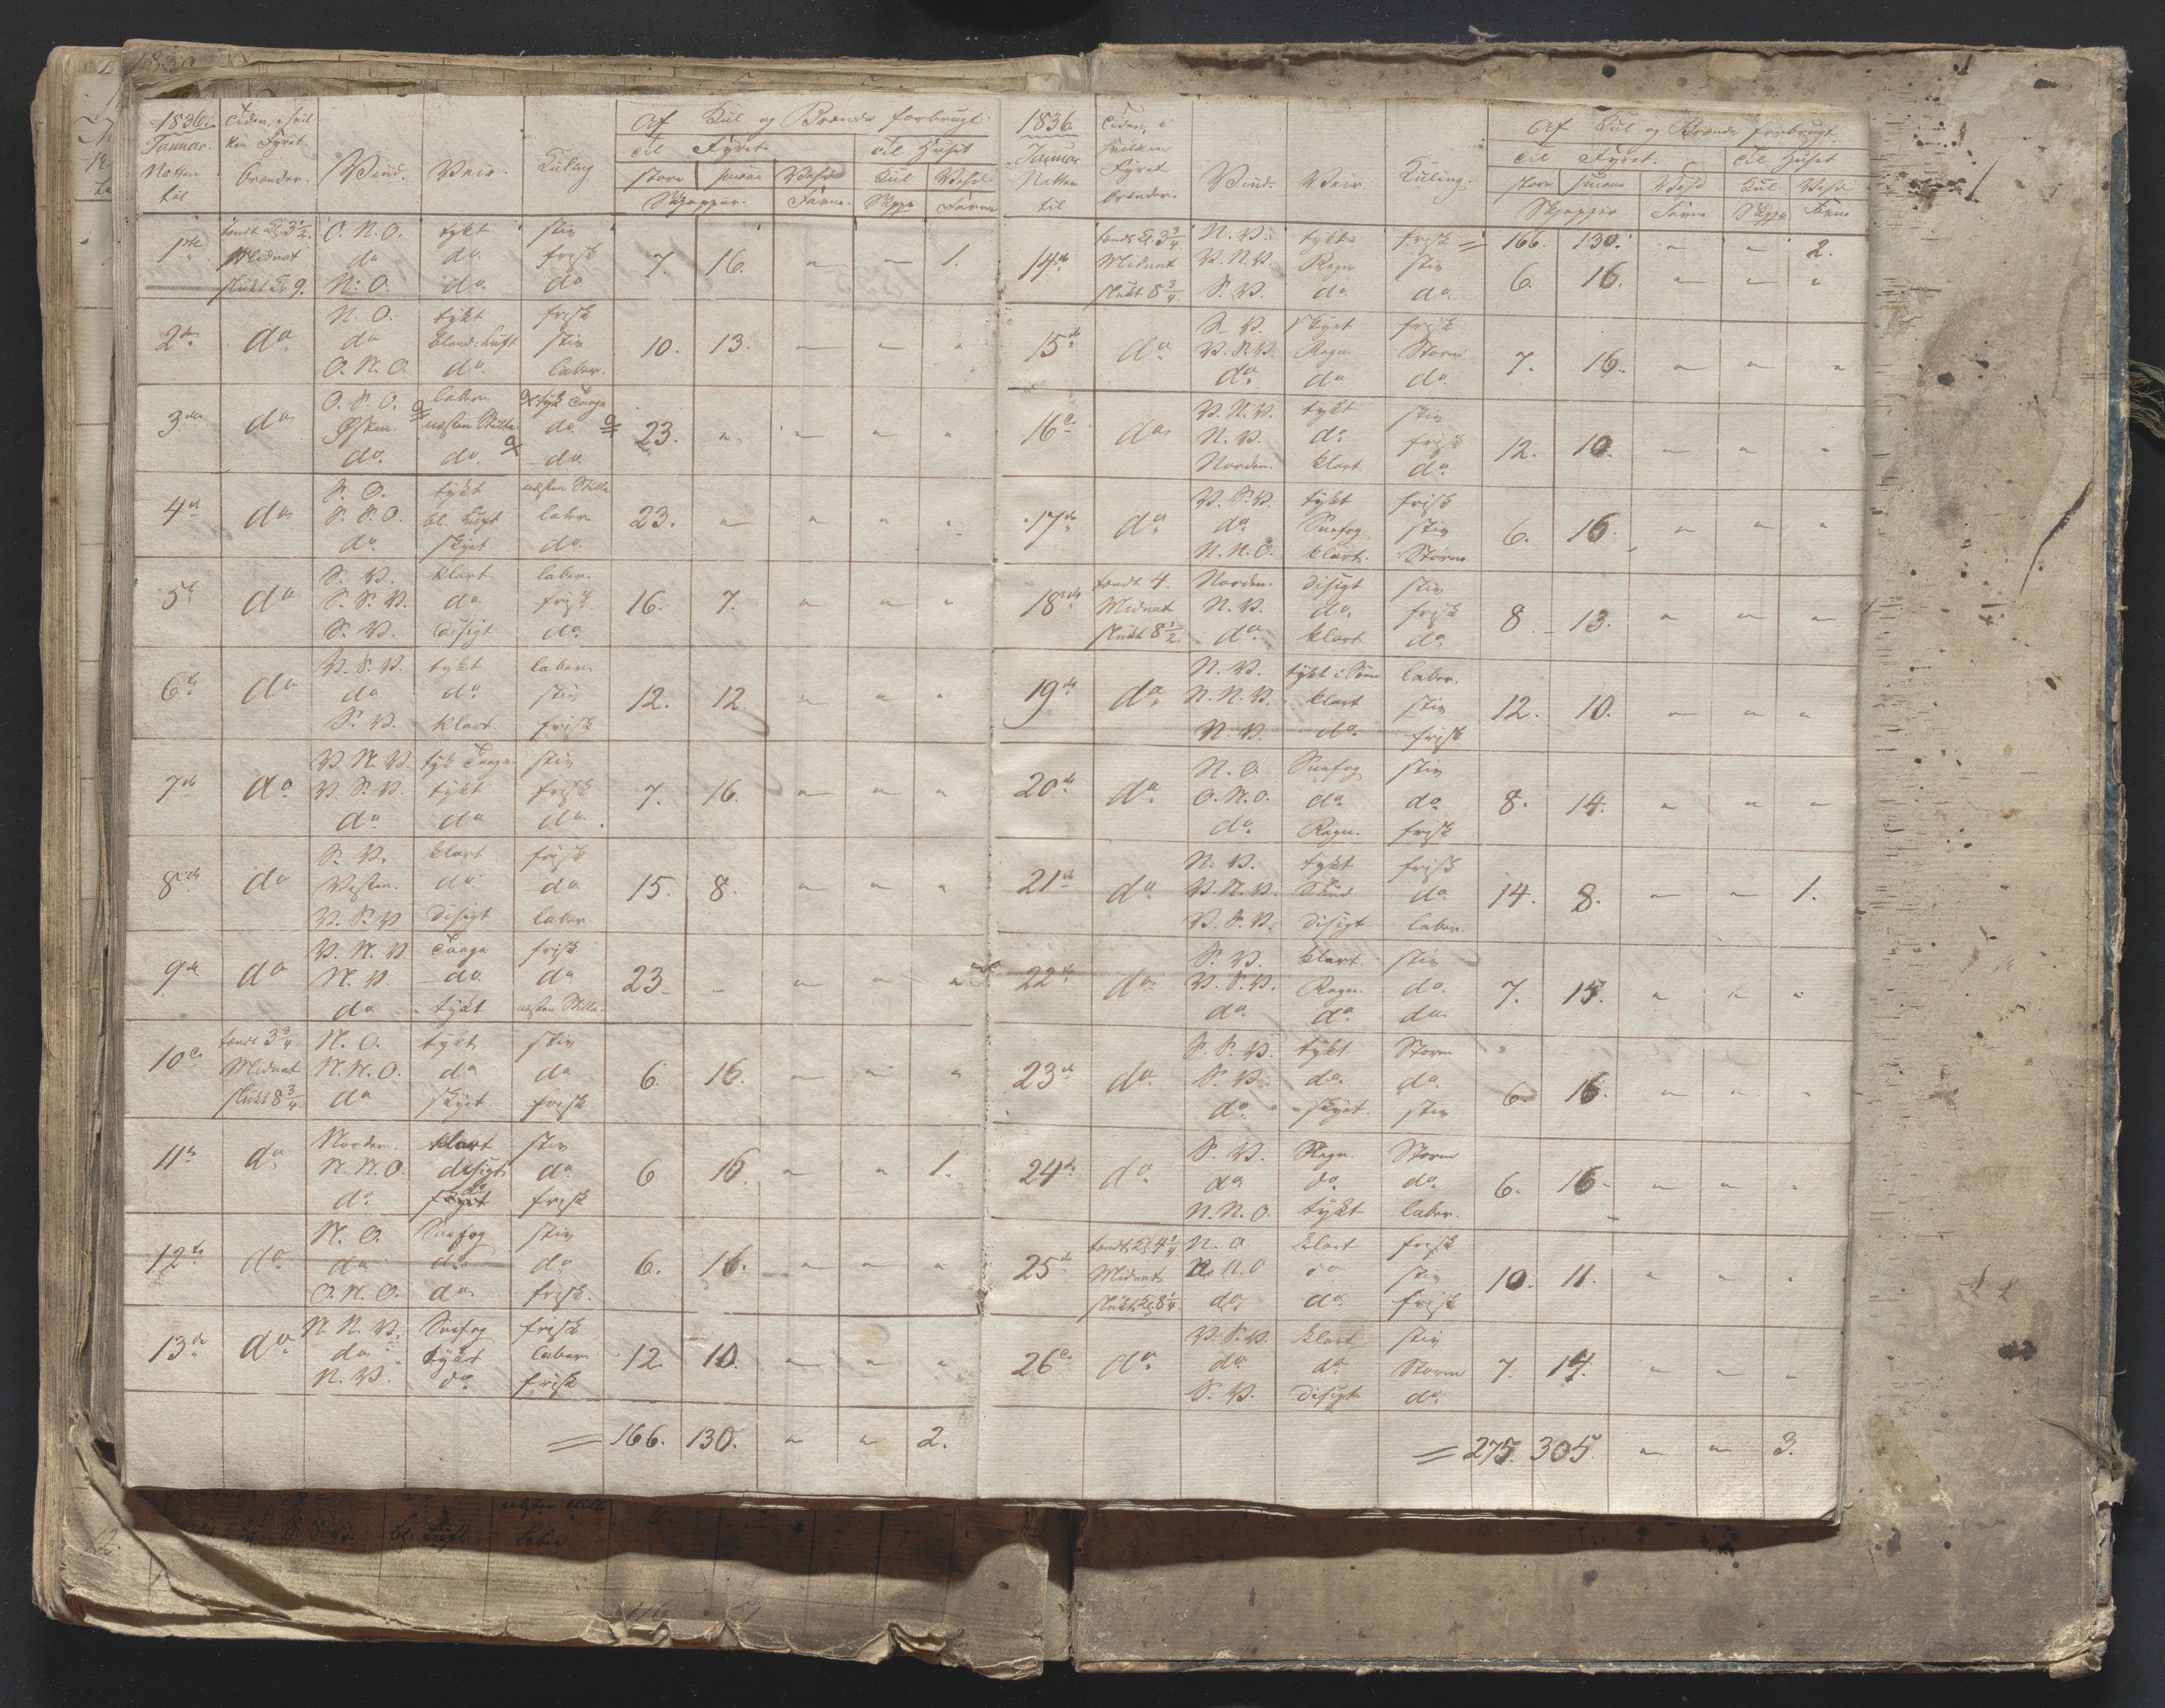 1836. Tiden, i hvil- Af Kul og Brænde forbrugt.
Januar. ken Fyret Til Fyret Til Huset
Natten brænder. Vind. Veir. Kuling store smaae Veed Kul Veed
til Skjepper. Favne. Skjpp Favne
tændt Kl. 3 1/2. O. N. O. tykt stiv
1ste Midnat do do frisk 7. 16. " " 1.
slukt Kl 9. N. O. do do
N. O. tykt frisk
2den do do bland: Luft stiv 10. 13. " " "
O. N. O. do laber.
O. S. O. laber tyk Taage
3die do Østen. næsten Stille do 23. " " " "
do. do. do
S. O. tykt næsten Stille
4de do S. S. O. bl. Luft laber 23. " " " "
do. skyet do.
S. V. klart laber.
5te do S. S. V. do frisk 16. 7. " " "
S. V. disigt do.
V. S. V. tykt laber
6te do do do stiv 12. 12. " " "
S. V. klart. frisk
V. N. V. tyk Taage stiv
7de do V. S. V. tykt frisk 7. 16. " " "
do do do.
S. V. klart frisk
8de do Vesten. do. do 15. 8. " " "
V. S. V disigt laber.
V. N. V. Taage frisk
9de do N. V. do do 23 " " " "
do tykt næsten Stille.
tændt 3 3/4. N. O. tykt stiv
10de Midnat N. N. O. do do 6. 16. " " "
slukt 8 3/4. do skyet frisk
Norden. klart stiv
11te do N. N. O. disigt do 6 16 " " 1.
do. do frisk
N. O. Sneefog stiv
12te do do do do 6. 16. " " "
O. N. O. do frisk.
N. N. V. Sneefog frisk
13de do do tykt laber 12. 10. " " "
N. V. do frisk
= 166. 130. " " 2.
1836. Tiden, i Af Kul og Brænde forbrugt.
Januar hvilken Til Fyret. Til Huset
Natten Fyret Vind. Veir Kuling. store smaae Veed Kul Veed
til brænder. Skjepper Favne Skjpp Favne
tændt Kl 3 3/4 N. V. tykt frisk = 166. 130. " " 2.
14de Midnat V. N. V. Regn stiv 6. 16. " " "
slukt 8 3/4. S. V. do do.
S. V. skyet frisk
15de do V. N. V. Regn Storm 7. 16. " " "
do. do do
V. N. V. tykt stiv
16de do N. V. do frisk 12. 10. " " "
Norden. klart. do.
V. S. V. tykt frisk
17de do do Sneefog stiv 6. 16. " " "
N. N. O. klart. Storm
tændt 4. Norden. disigt stiv
18de Midnat N. V. do. frisk 8. 13. " " "
slukt 8 1/2. do klart do
N. V. tykt i laber.
19de do N. N. V. klart stiv 12. 10. " " "
N. V. do. frisk
N. O. Sneefog stiv
20de do O. N. O. do do 8. 14. " " "
do. Regn. frisk
N. V. tykt frisk
21de do V. N. V. do. 14. 8. " " 1.
V. S. V. disigt laber.
S. V. klart stiv
22de do V. S. V. Regn do. 7. 15. " " "
do do do
S. S. V. tykt Storm
23de do S. V. do. do. 6. 16. " " "
do skyet. stiv
S. V. Regn. Storm
24de do do do do. 6. 16. " " "
N. N. O. tykt laber.
tændt Kl. 4 1/4 N. O. klart frisk
25de Midnat N. O do stiv 10. 11. " " "
slukt Kl 8 1/4. do. do frisk
V. S. V. klart stiv
26de do do do Storm 7. 14. " " "
S. V. disigt do.
= 275. 305. " " 3.
næsten Stille
S. S. V. bl. Luft laber